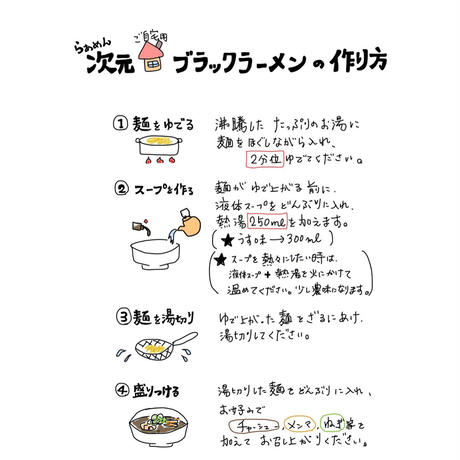 らぁめん
ご自宅用
次元 ブラックラーメンの作り方
① 麺をゆでる
沸騰した たっぷりのお湯に
麺をほぐしながら入れ、
2分位 ゆでてください。
② スープを作る
麺がゆで上がる前に、
液体スープをどんぶりに入れ、
熱湯250mlを加えます。
(★うす味→300ml)
(★スープを熱々にしたい時は、
液体スープ + 熱湯を火にかけて
温めてください。少し濃味になります。)
③ 麺を湯切り
ゆで上がった麺をざるにあけ、
湯切りしてください。
④ 盛りつける
湯切りした麺をどんぶりに入れ、
お好みで
チャーシュー、メンマ、ねぎ等を
加えてお召し上がりください。